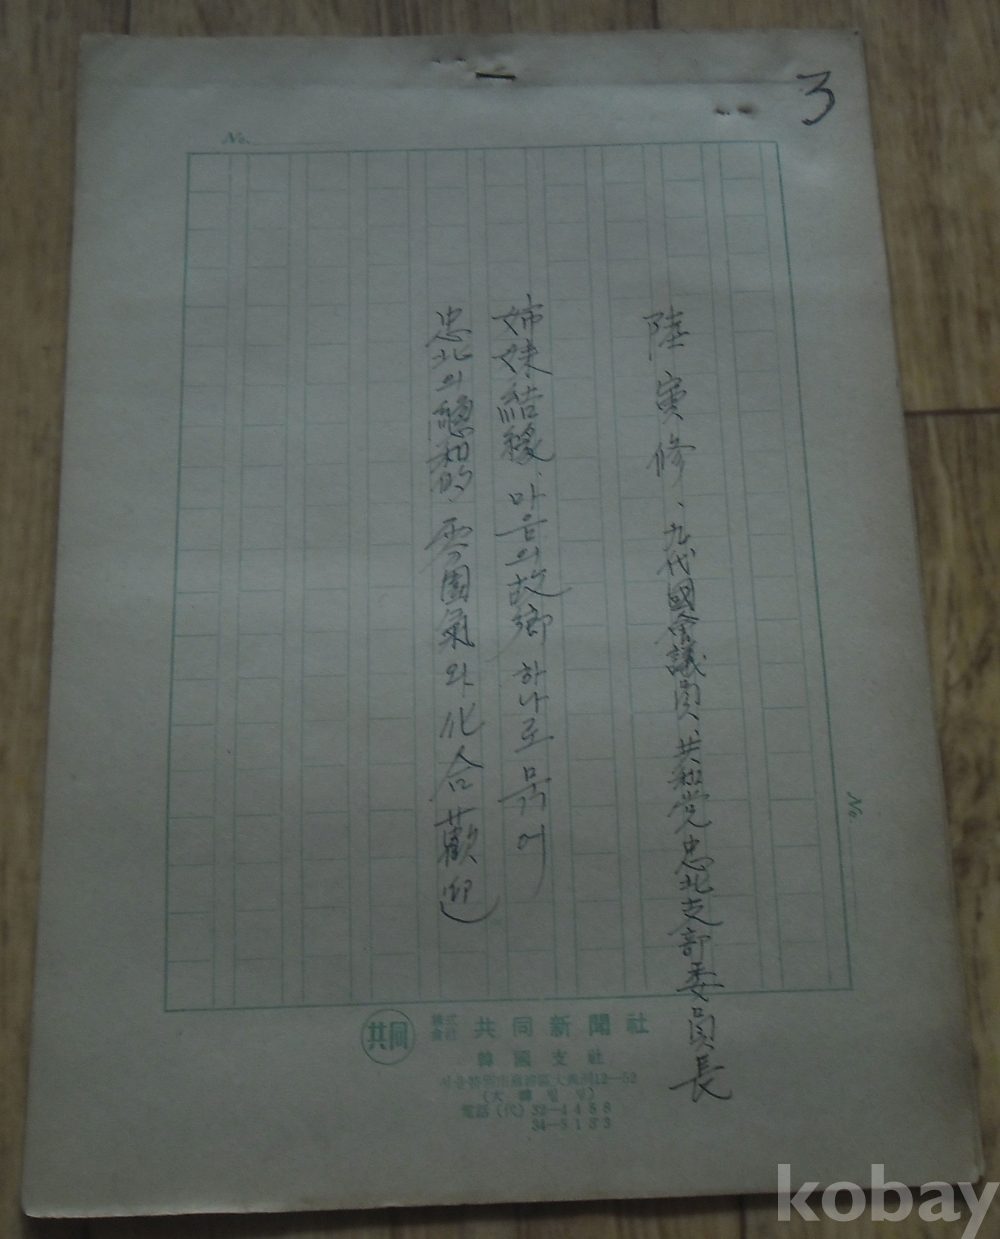 3
No.
陸寅修、九代國會議員、共和党忠北支部委員長
姉妹結緣、마음의 故鄕 하나로 묶어
忠北의 穩和的 雰圍氣와 化合歡迎)
No.
共同 株式會社 共同新聞社
韓國支社
서울特別市麻浦區大興洞12—52
電話(代)32—4488
34—5133
kobay